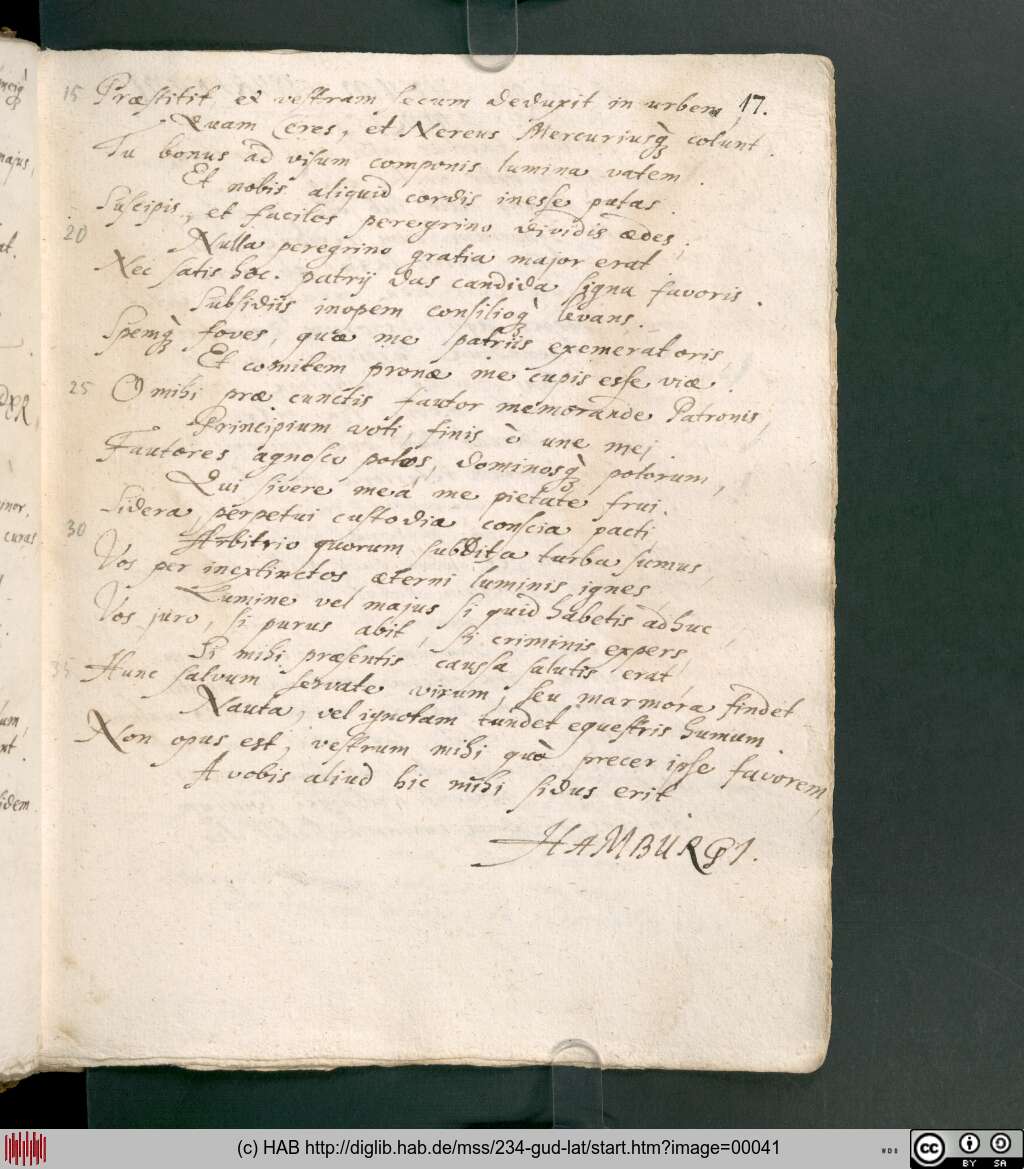 17.
15 Præstitit, et vestram secum deduxit in urbem,
Quam Ceres, et Nereus Mercuriusq̀ꝫ colunt.
Tu bonus ad visum componis lumina vatem.
Et nobis aliquid cordis inesse putas.
Suscipis, et faciles peregrino dividis ædes;
20 Nulla peregrino gratia major erat.
Nec satis hoc. patrij das candida signa favoris.
Subsidiis inopem consilioq̀ꝫ levans.
Spemq̀ꝫ foves, quæ me patriis exemerat oris,
Et comitem pronæ me cupis esse viæ.
25 O mihi præ cunctis fautor memorande Patronis,
Principium voti, finis ò une mei
Fautores agnosco polos, dominosq̀ꝫ polorum,
Qui sivere meâ me pietate frui.
Sidera perpetui custodia conscia pacti
30 Arbitrio quorum subdita turba sumus,
Vos per inextinctos æterni luminis ignes
Lumine vel majus si quid habetis adhuc,
Vos juro, si purus abit, si criminis expers,
Si mihi præsentis caussa salutis erat,
35 Hunc salvum servate virum, seu marmora findet
Nauta, vel ignotam tundet equestris humum.
Non opus est, vestrum mihi quò precer ipse favorem,
A vobis aliud hic mihi sidus erit.
HAMBURGI.
majus,
curas
idem
(c) HAB http://diglib.hab.de/mss/234-gud-lat/start.htm?image=00041
cc BY SA